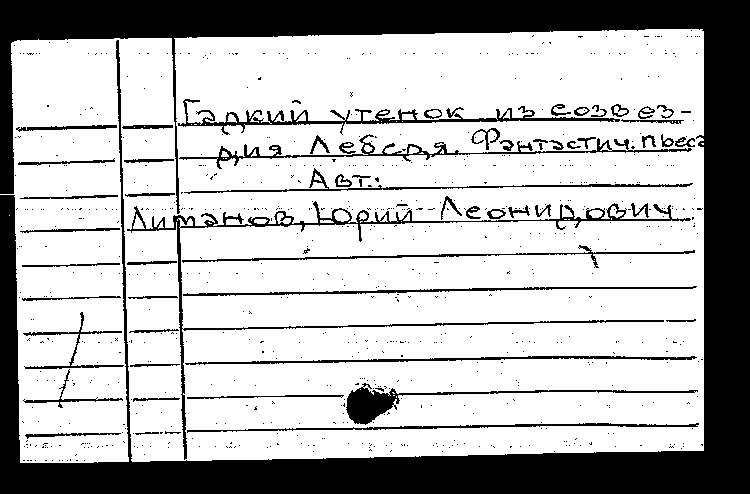 Гадкий утенок из созвез-
дия Лебедя. Фантастич. пьеса
Авт.:
Литанов, Юрий Леонидович